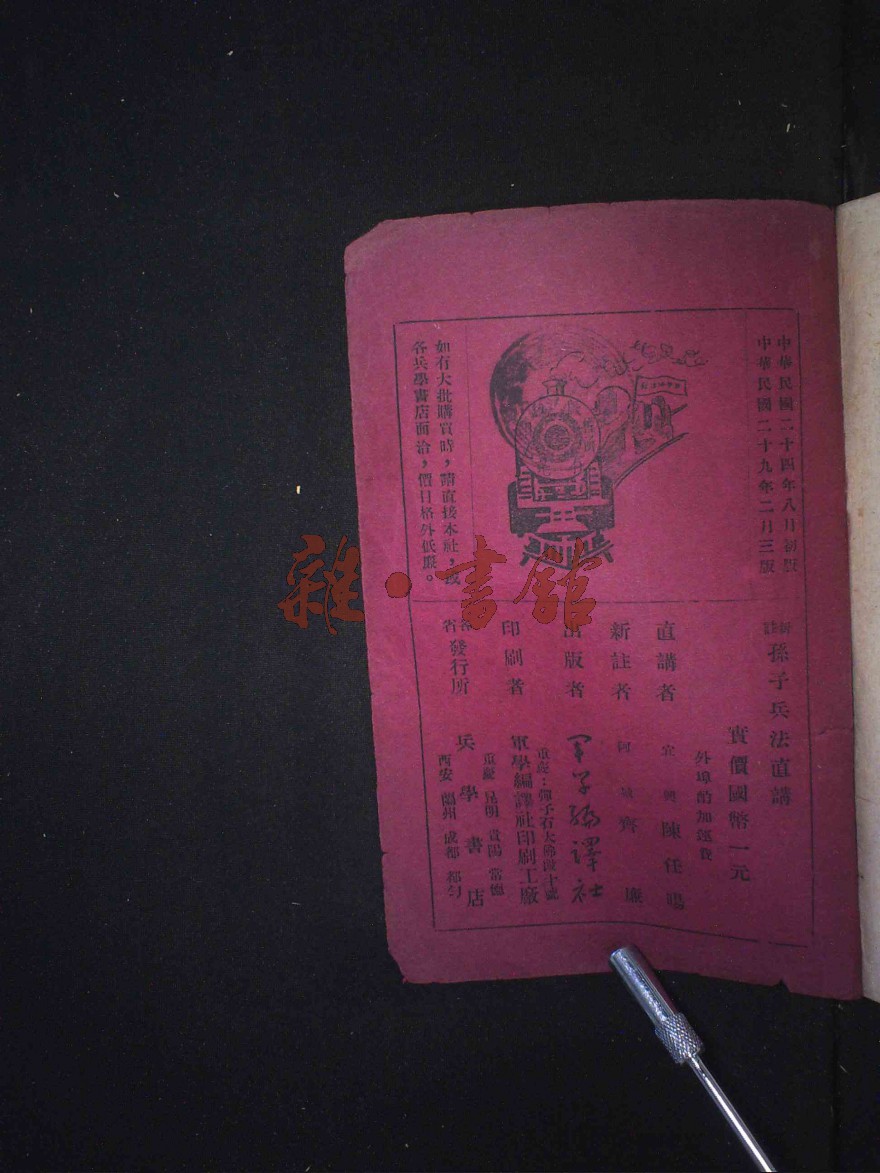 中華民國二十四年八月初版
中華民國二十九年二月三版
孫子兵法直講
實價國幣一元
外埠酌加運費
直講者 宜興 陳任暘
新註者 阿城 齊廉
出版者 軍學編譯社
重慶：彈子石大佛
印刷者 軍學編譯社印刷工廠
各省發行所 兵學書店
重慶 昆明 貴陽 常德
西安 蘭州 成都 都勻
如有大批購買時，請直接本社，或
各兵學書店面洽，價目格外低廉。
雜·書館